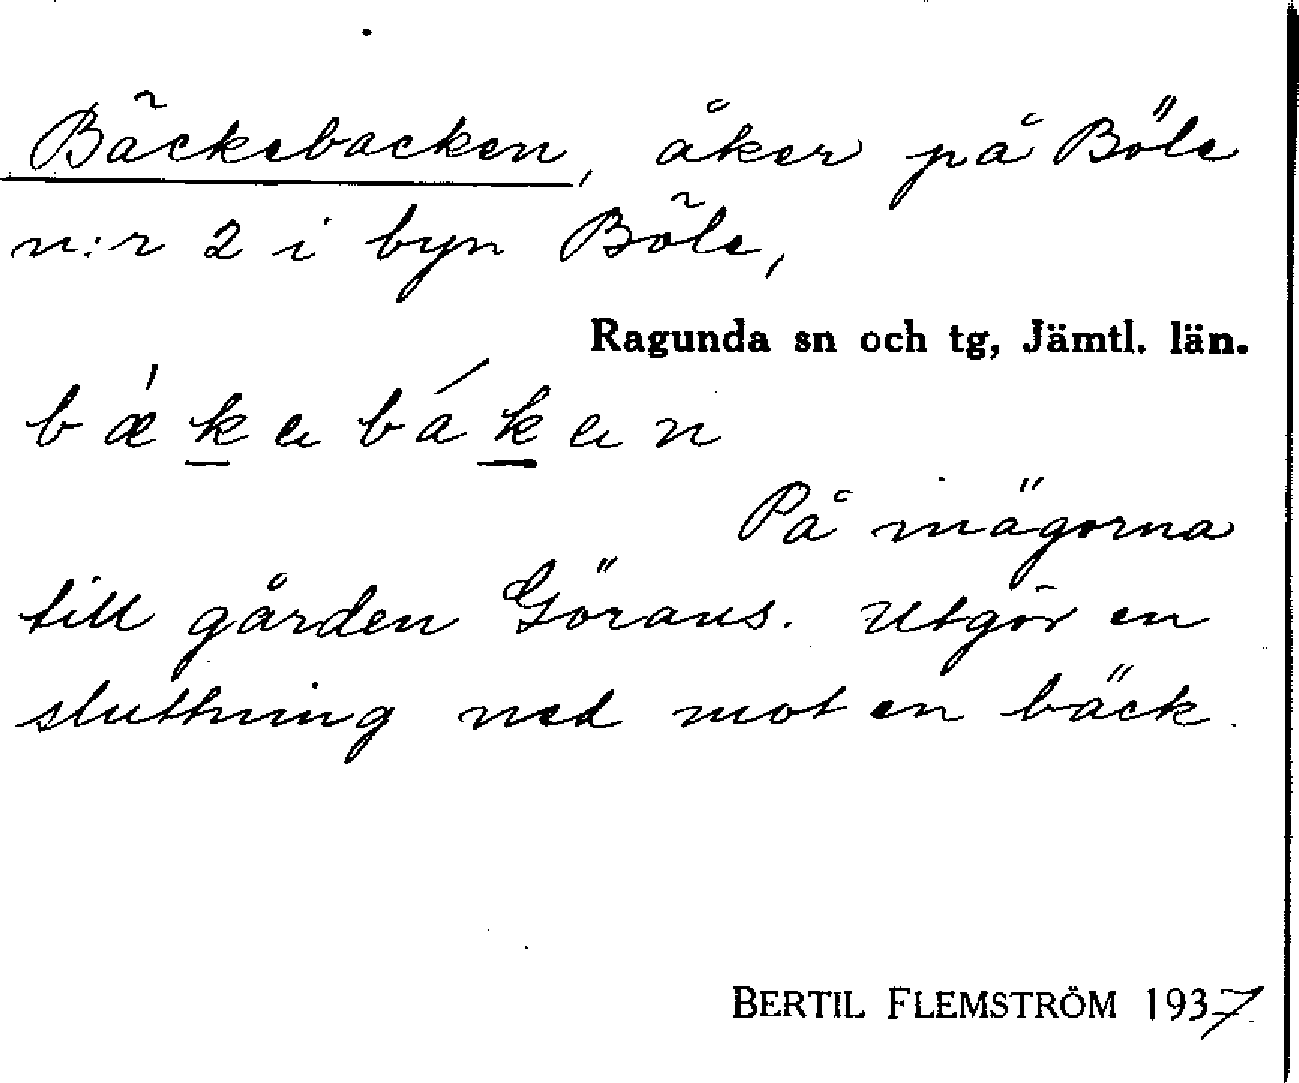 Bäckebacken, åker på Böle
n:r 2 i byn Böle,
Ragunda sn och tg, Jämtl. län.
bǽkebáken
På mägorna
till gården Görans. Utgör en
sluttning ned mot en bäck.
BERTIL FLEMSTRÖM 1937